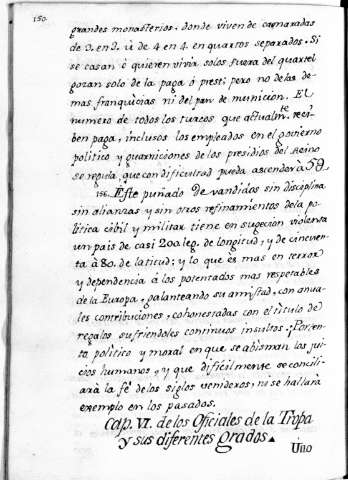 150.
grandes monasterios, donde viven de camaradas
de 2. en 2. ù de 4 en 4. en quartos separados. Si
se casan ò quieren vivir solos fuera del quartel
gozan solo de la paga ò prest; pero no de las de-
mas franquicias ni del pan de municion. El
numero de todos los turcos que actualm.te reci-
ben paga, inclusos los empleados en el govierno
politico y guarniciones de los presidios del Reino
se regula, que con dificultad pueda ascender à 5
156. Este puñado de vandidos sin disciplina
sin alianzas y sin otros refinamientos de la po-
litica cibil y militar tiene en sugecion violenta
un pais de casi 200 leg. de longitud, y de cincuen-
ta à 80. de latitud; y lo que es mas en terror
y dependencia à los potentados mas respetables
de la Europa, galanteando su amistad, con anua-
les contribuciones, cohonestadas con el titulo de
regalos sufriendoles continuos insultos: ¡Porten-
to politico y moral en que se abisman los jui-
cios humanos, y que dificilmente se concili-
arà la fé de los siglos venideros, ni se hallarà
exemplo en los pasados.
Cap. VI. de los Oficiales de la Tropa
y sus diferentes grados
Uno